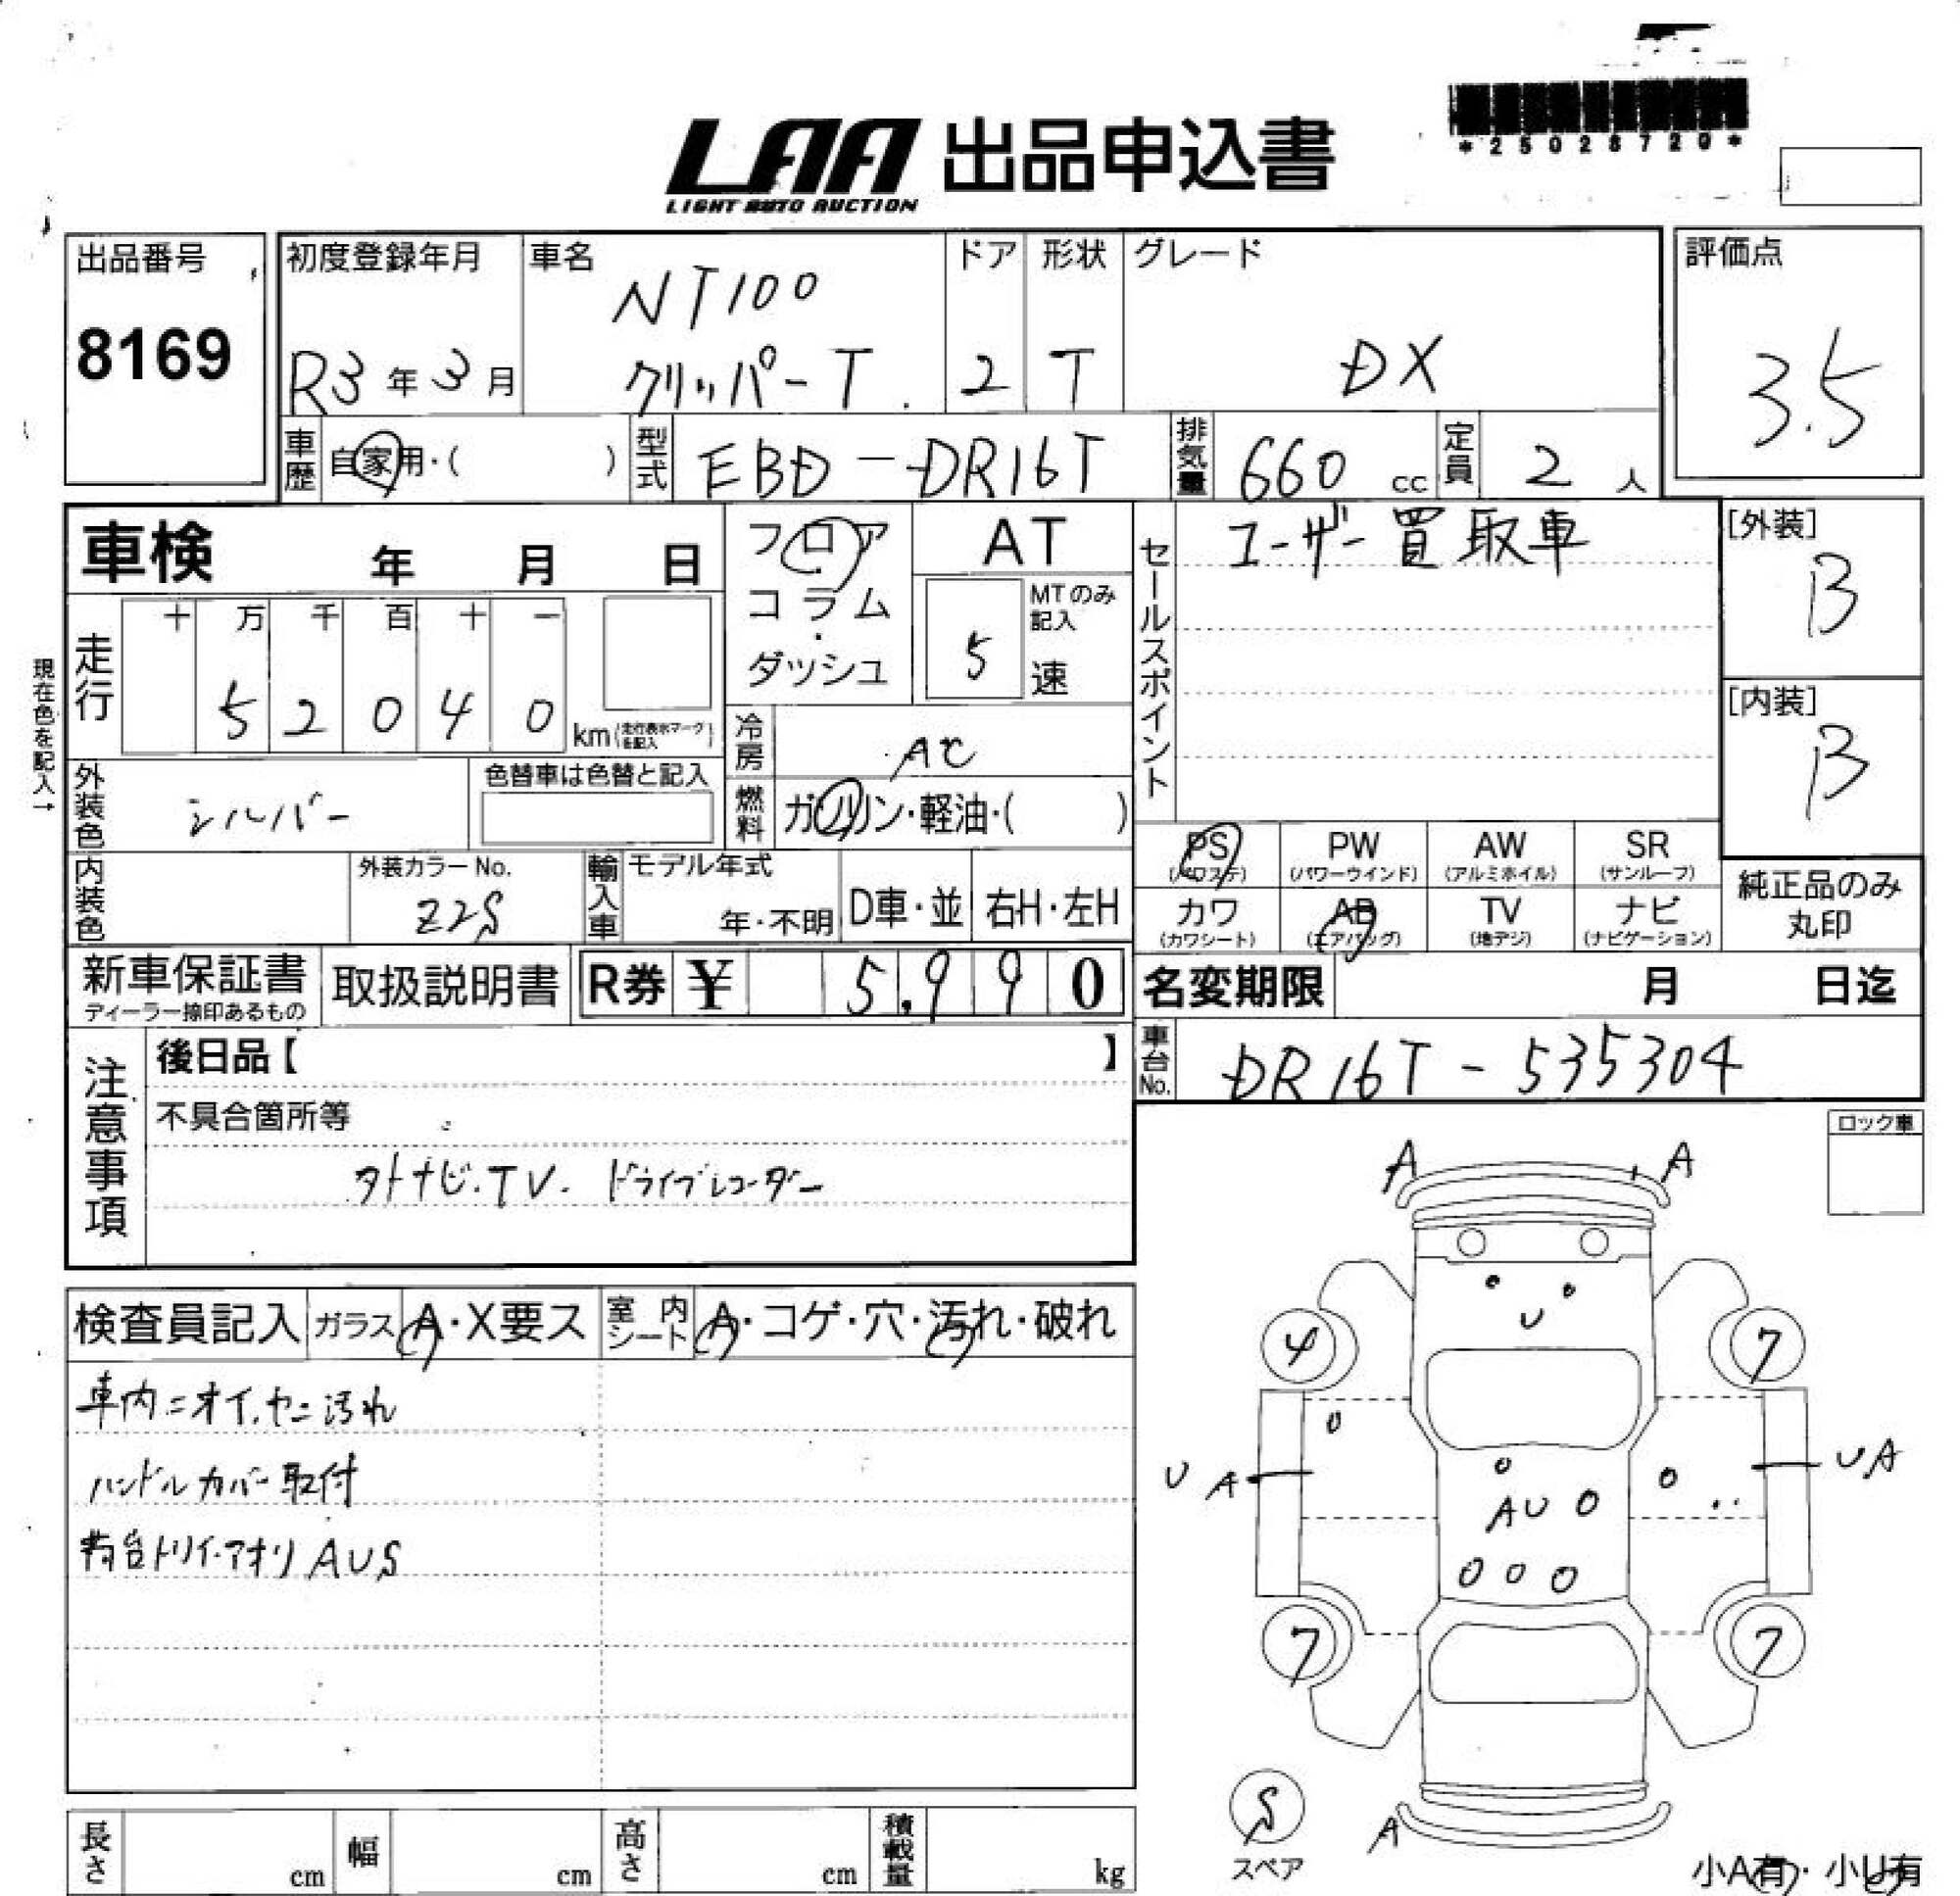 *25028720*
LAA 出品申込書
LIGHT AUTO AUCTION
出品番号
8169
初度登録年月
R3年3月
車名
NT100
クリッパーT
ドア
2
形状
T
グレード
DX
評価点
3.5
車歴
自家用・( )
型式
EBD-DR16T
排気量
660 cc
定員
2 人
車検 年 月 日
フロア
・
コラム
・
ダッシュ
AT
MTのみ記入
5 速
セールスポイント
ユーザー買取車
[外装]
B
[内装]
B
現在色を記入→
走行
十 万 千 百 十 一
5 2 0 4 0 km (走行表示マークを記入)
冷房
AC
燃料
ガソリン・軽油・( )
外装色
シルバー
色替車は色替と記入
内装色
外装カラーNo.
Z2S
輸入車
モデル年式
年・不明
D車・並
右H・左H
PS (パワステ)
PW (パワーウインド)
AW (アルミホイル)
SR (サンルーフ)
カワ (カワシート)
AB (エアバッグ)
TV (地デジ)
ナビ (ナビゲーション)
純正品のみ
丸印
新車保証書
ディーラー捺印あるもの
取扱説明書
R券 ¥ 5,990
名変期限 月 日迄
車台No.
DR16T-535304
注意事項
後日品【 】
不具合箇所等
外ナビ.TV. ドライブレコーダー
ロック車
検査員記入
ガラス
A・X要ス
室内シート
A・コゲ・穴・汚れ・破れ
車内ニオイ.ヤニ汚れ
ハンドルカバー取付
荷台トリイ.アオリ AUS
A A
U
4 7
UA UA
AU
7 7
S
スペア
A
長さ cm
幅 cm
高さ cm
積載量 kg
小A有・小U有